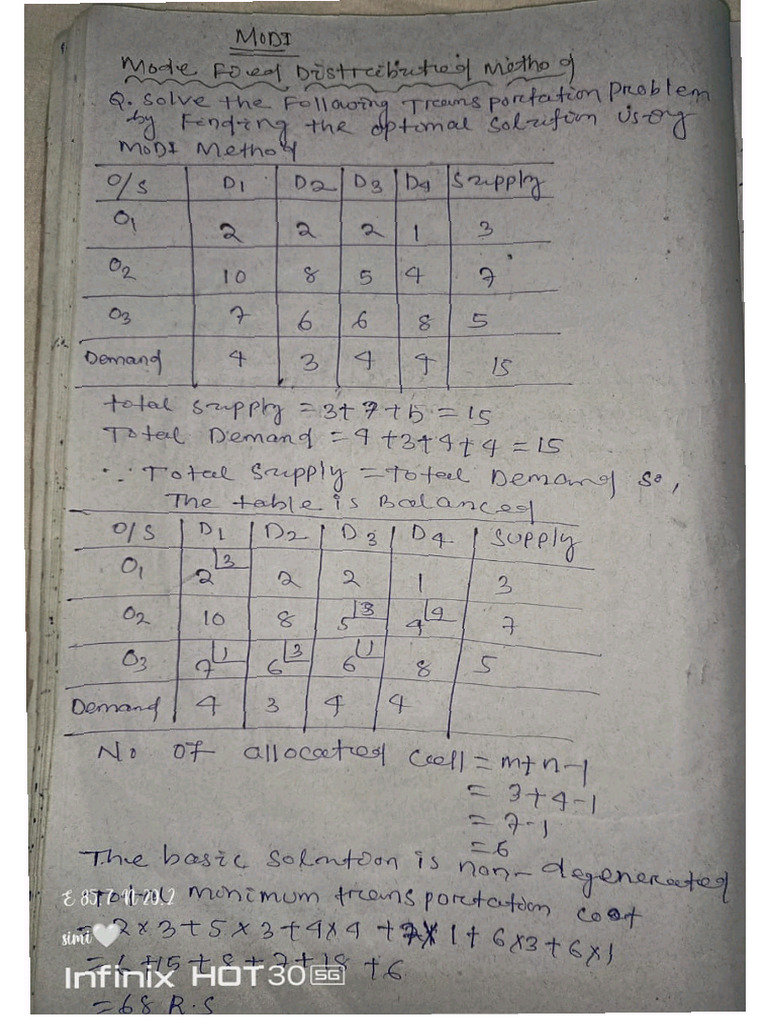 MODI
Mode Fied Distributed Method
Q. Solve the Following Transportation Problem
by Finding the optimal Solution Using
MODI Method
O/S D1 D2 D3 D4 Supply
O1 2 2 2 1 3
O2 10 8 5 4 7
O3 7 6 6 8 5
Demand 4 3 4 4 15
total supply = 3+7+5 = 15
Total Demand = 4+3+4+4 = 15
∵ Total Supply = total Demand so,
The table is Balanced
O/S D1 D2 D3 D4 Supply
O1 2 3 2 2 1 3
O2 10 8 5 3 4 4 7
O3 7 1 6 3 6 1 8 5
Demand 4 3 4 4
No of allocated Cell = m+n-1
= 3+4-1
= 7-1
= 6
The basic solution is non-degenerated
total minimum transportation cost
= 2×3+5×3+4×4+7×1+6×3+6×1
= 6+15+8+7+18+6
= 68 R.S
simi
Infinix HOT 30 5G